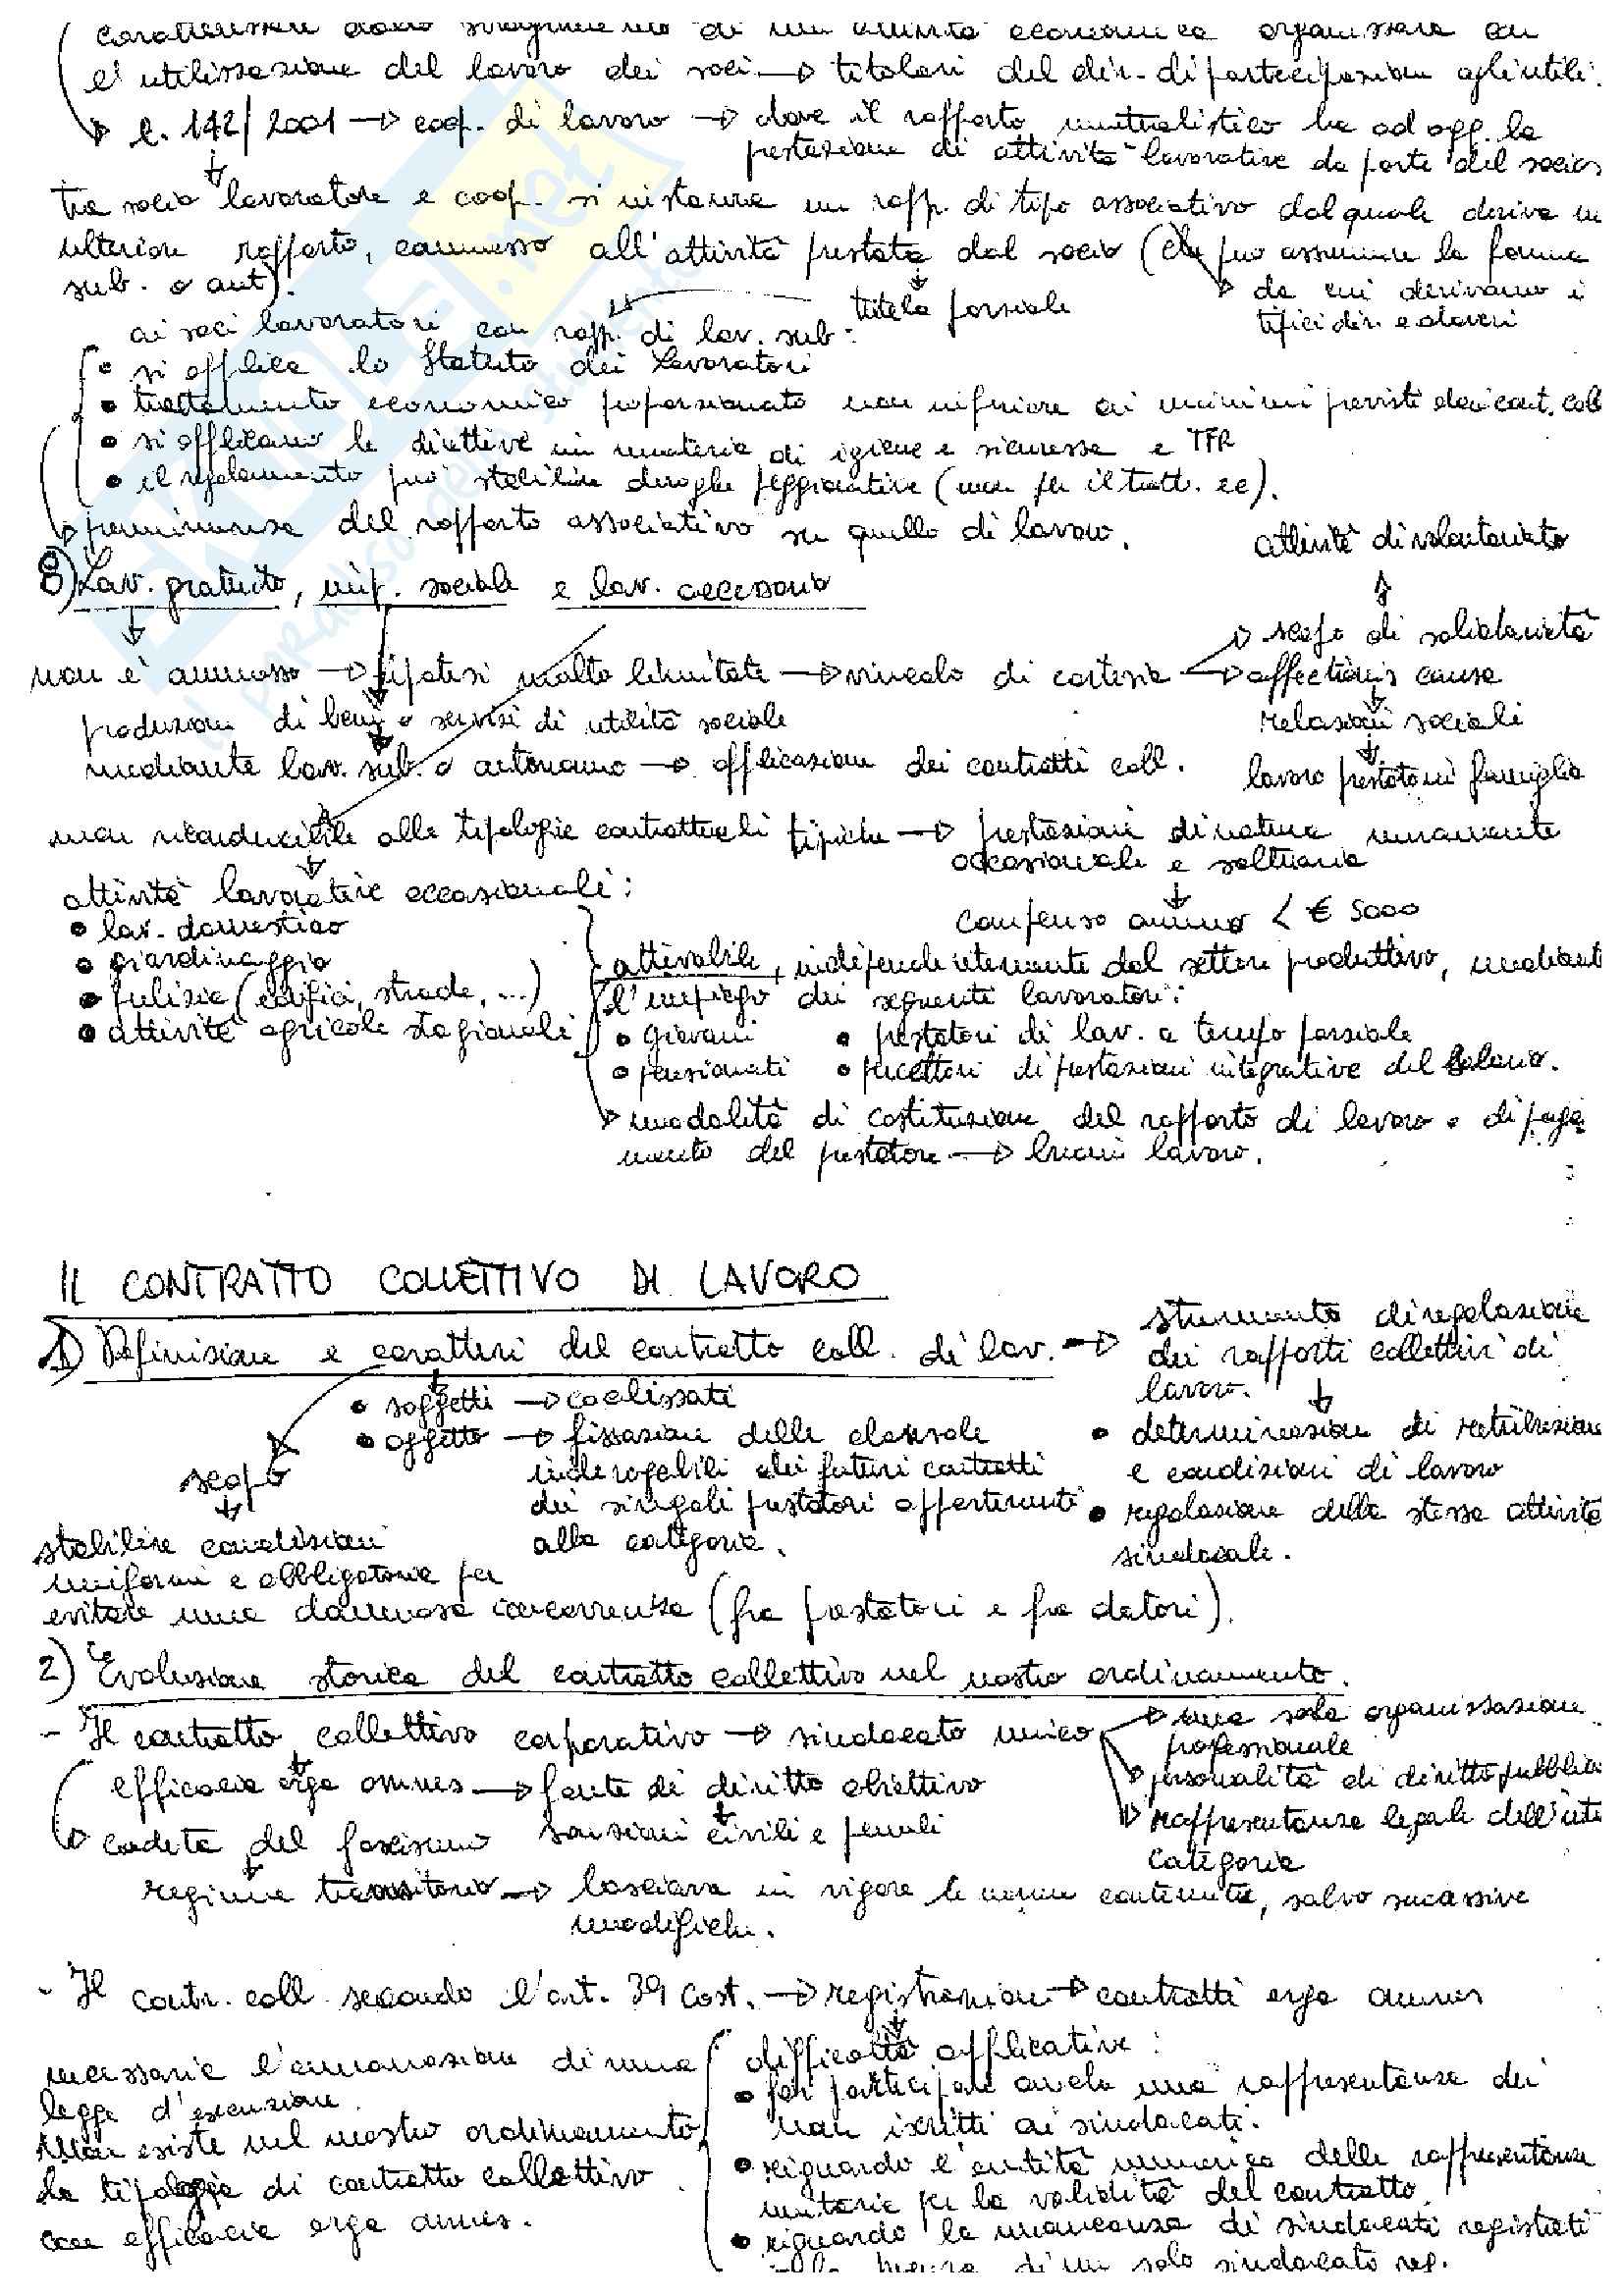 caratterizzate dallo svolgimento di un'attività economica organizzata con
l'utilizzazione del lavoro dei soci → titolari del dir. di partecipazione agli utili.
l. 142/2001 → coop. di lavoro → dove il rapporto mutualistico ha ad ogg. la
prestazione di attività lavorative da parte del socio
tra socio lavoratore e coop. si instaura un rapp. di tipo associativo dal quale deriva un
ulteriore rapporto, connesso all'attività prestata dal socio (che può assumere la forma
sub. o aut).
tutela parziale
da cui derivano i
tipici dir. e doveri
ai soci lavoratori con rapp. di lav. sub:
• si applica lo Statuto dei Lavoratori
• trattamento economico proporzionato non inferiore ai minimi previsti dai cont. coll
• si applicano le direttive in materia di igiene e sicurezza e TFR
• il regolamento può stabilire deroghe peggiorative (non per il tratt. ec).
preminenza del rapporto associativo su quello di lavoro.
8) Lav. gratuito, imp. sociale e lav. accessorio
attività di volontariato
scopo di solidarietà
non è ammesso → ipotesi molto limitate → vincolo di cortesia → affectionis causa
relazioni sociali
lavoro prestato in famiglia
produzione di beni o servizi di utilità sociale
mediante lav. sub. o autonomo → applicazione dei contratti coll.
non riconducibile alle tipologie contrattuali tipiche → prestazioni di natura meramente
occasionale e saltuaria
compenso annuo < € 5000
attività lavorative occasionali:
• lav. domestico
• giardinaggio
• pulizia (edifici, strade, ...)
• attività agricole stagionali
attivabile, indipendentemente dal settore produttivo, mediante
l'impiego dei seguenti lavoratori:
• giovani • prestatori di lav. a tempo parziale
• pensionati • percettori di prestazioni integrative del salario.
modalità di costituzione del rapporto di lavoro e di paga
mento del prestatore → buoni lavoro.
IL CONTRATTO COLLETTIVO DI LAVORO
1) Definizione e caratteri del contratto coll. di lav. → strumento di regolazione
dei rapporti collettivi di
lavoro.
• soggetti → coalizzati
• oggetto → fissazione delle clausole
inderogabili dei futuri contratti
dei singoli prestatori appartenenti
alla categoria.
• determinazione di retribuzione
e condizioni di lavoro
• regolazione della stessa attività
sindacale.
scopo
stabilire condizioni
uniformi e obbligatorie per
evitare una dannosa concorrenza (fra prestatori e fra datori).
2) Evoluzione storica del contratto collettivo nel nostro ordinamento.
- Il contratto collettivo corporativo → sindacato unico
una sola organizzazione
professionale
personalità di diritto pubblico
rappresentanza legale dell'int
categoria
efficacia erga omnes → fonte di diritto obiettivo
sanzioni civili e penali
caduta del fascismo
regime transitorio → lasciava in vigore le norme contenute, salvo successive
modifiche.
- Il contr. coll. secondo l'art. 39 Cost. → registrazione → contratti erga omnes
necessaria l'emanazione di una
legge d'esecuzione.
Non esiste nel nostro ordinamento
la tipologia di contratto collettivo
con efficacia erga omnes.
difficoltà applicative:
• far partecipare anche una rappresentanza dei
non iscritti ai sindacati.
• riguardo l'entità numerica delle rappresentanze
unitarie per la validità del contratto.
• riguardo la mancanza di sindacati registrati
di un solo sindacato reg.